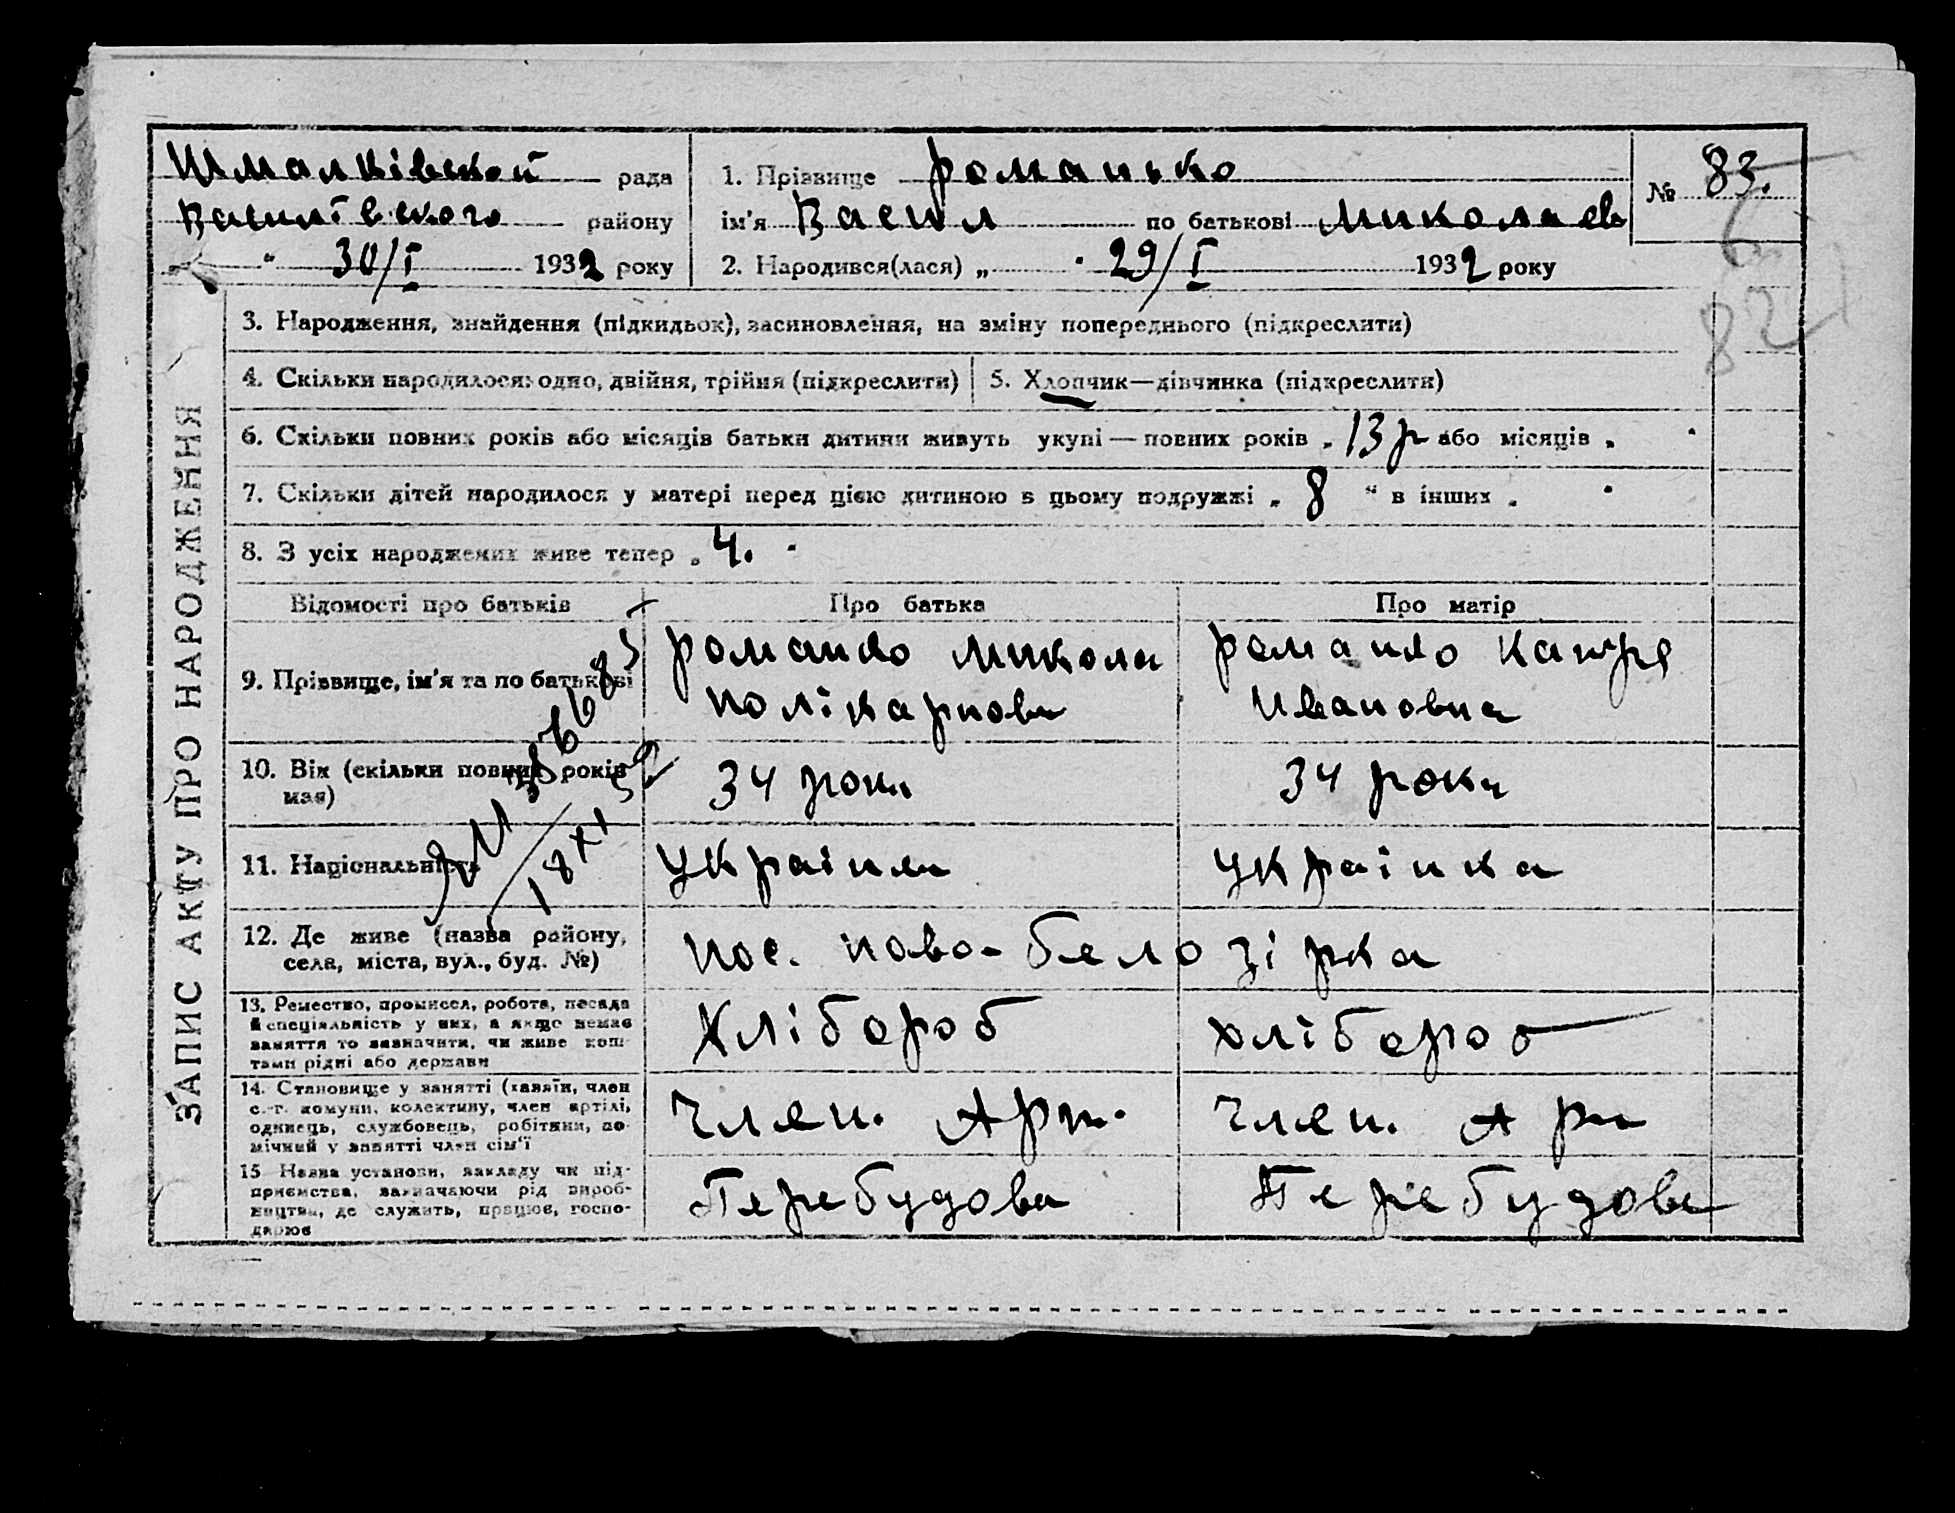 Шмалківской рада
Василівского району
" 30/I 1932 року
1. Прізвище Романько
ім'я Васил по батькові Миколаев
2. Народився(лася) „ 29/I 1932 року
№ 83.
6
82
ЗАПИС АКТУ ПРО НАРОДЖЕННЯ
3. Народження, знайдення (підкидьок), засиновлення, на зміну попереднього (підкреслити)
4. Скільки народилося: одно, двійня, трійня (підкреслити)
5. Хлопчик—дівчинка (підкреслити)
6. Скільки повних років або місяців батьки дитини живуть укупі — повних років „ 13 р або місяців „
7. Скільки дітей народилося у матері перед цією дитиною в цьому подружжі „ 8 " в інших „
8. З усіх народжених живе тепер „ 4.
Відомості про батьків Про батька Про матір
9. Прізвище, ім'я та по батькові
Романко Микола
Полікарпови
Романко Катре
Ивановна
10. Вік (скільки повних років
має)
34 роки 34 роки
11. Національність
українец українка
18 XI 52
12. Де живе (назва району,
села, міста, вул., буд. №)
пос. Ново-Белозірка
13. Ремество, промисел, робота, посада
й спеціяльність у них, а якщо немає
заняття то зазначити, чи живе кош-
тами рідні або держави
Хлібороб хлібороб
14. Становище у занятті (хазяїн, член
с.-г. комуни, колективу, член артілі,
одинець, службовець, робітник, по-
мічний у занятті член сім'ї
член. Арт. член. Арт
15 Назва установи, закладу чи під-
приємства, зазначаючи рід вироб-
ництва, де служить, працює, госпо-
дарює
Перебудова Перебудова